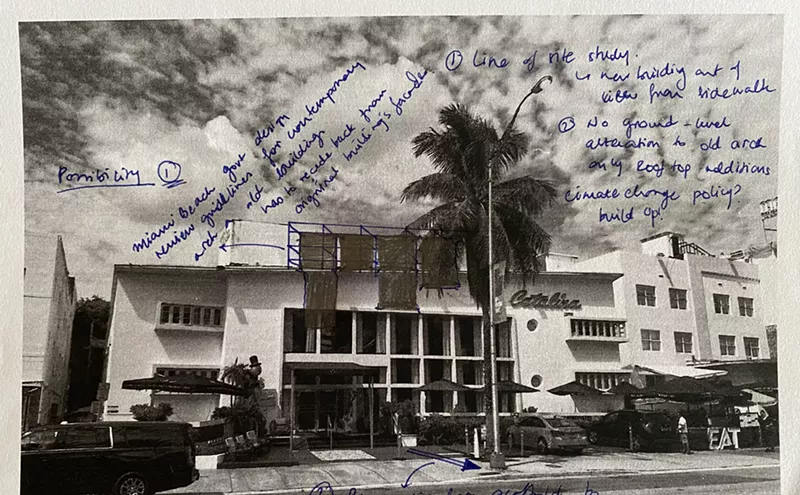 Possibility ①
Miami Beach govt design
review guidelines for contemporary
arch. next building
has to recede back from
original building's facade
① Line of site study.
↳ new building out of
view from sidewalk
② No ground-level
alteration to old arch
only rooftop additions
climate change policy?
build up!
Catalina
EAT